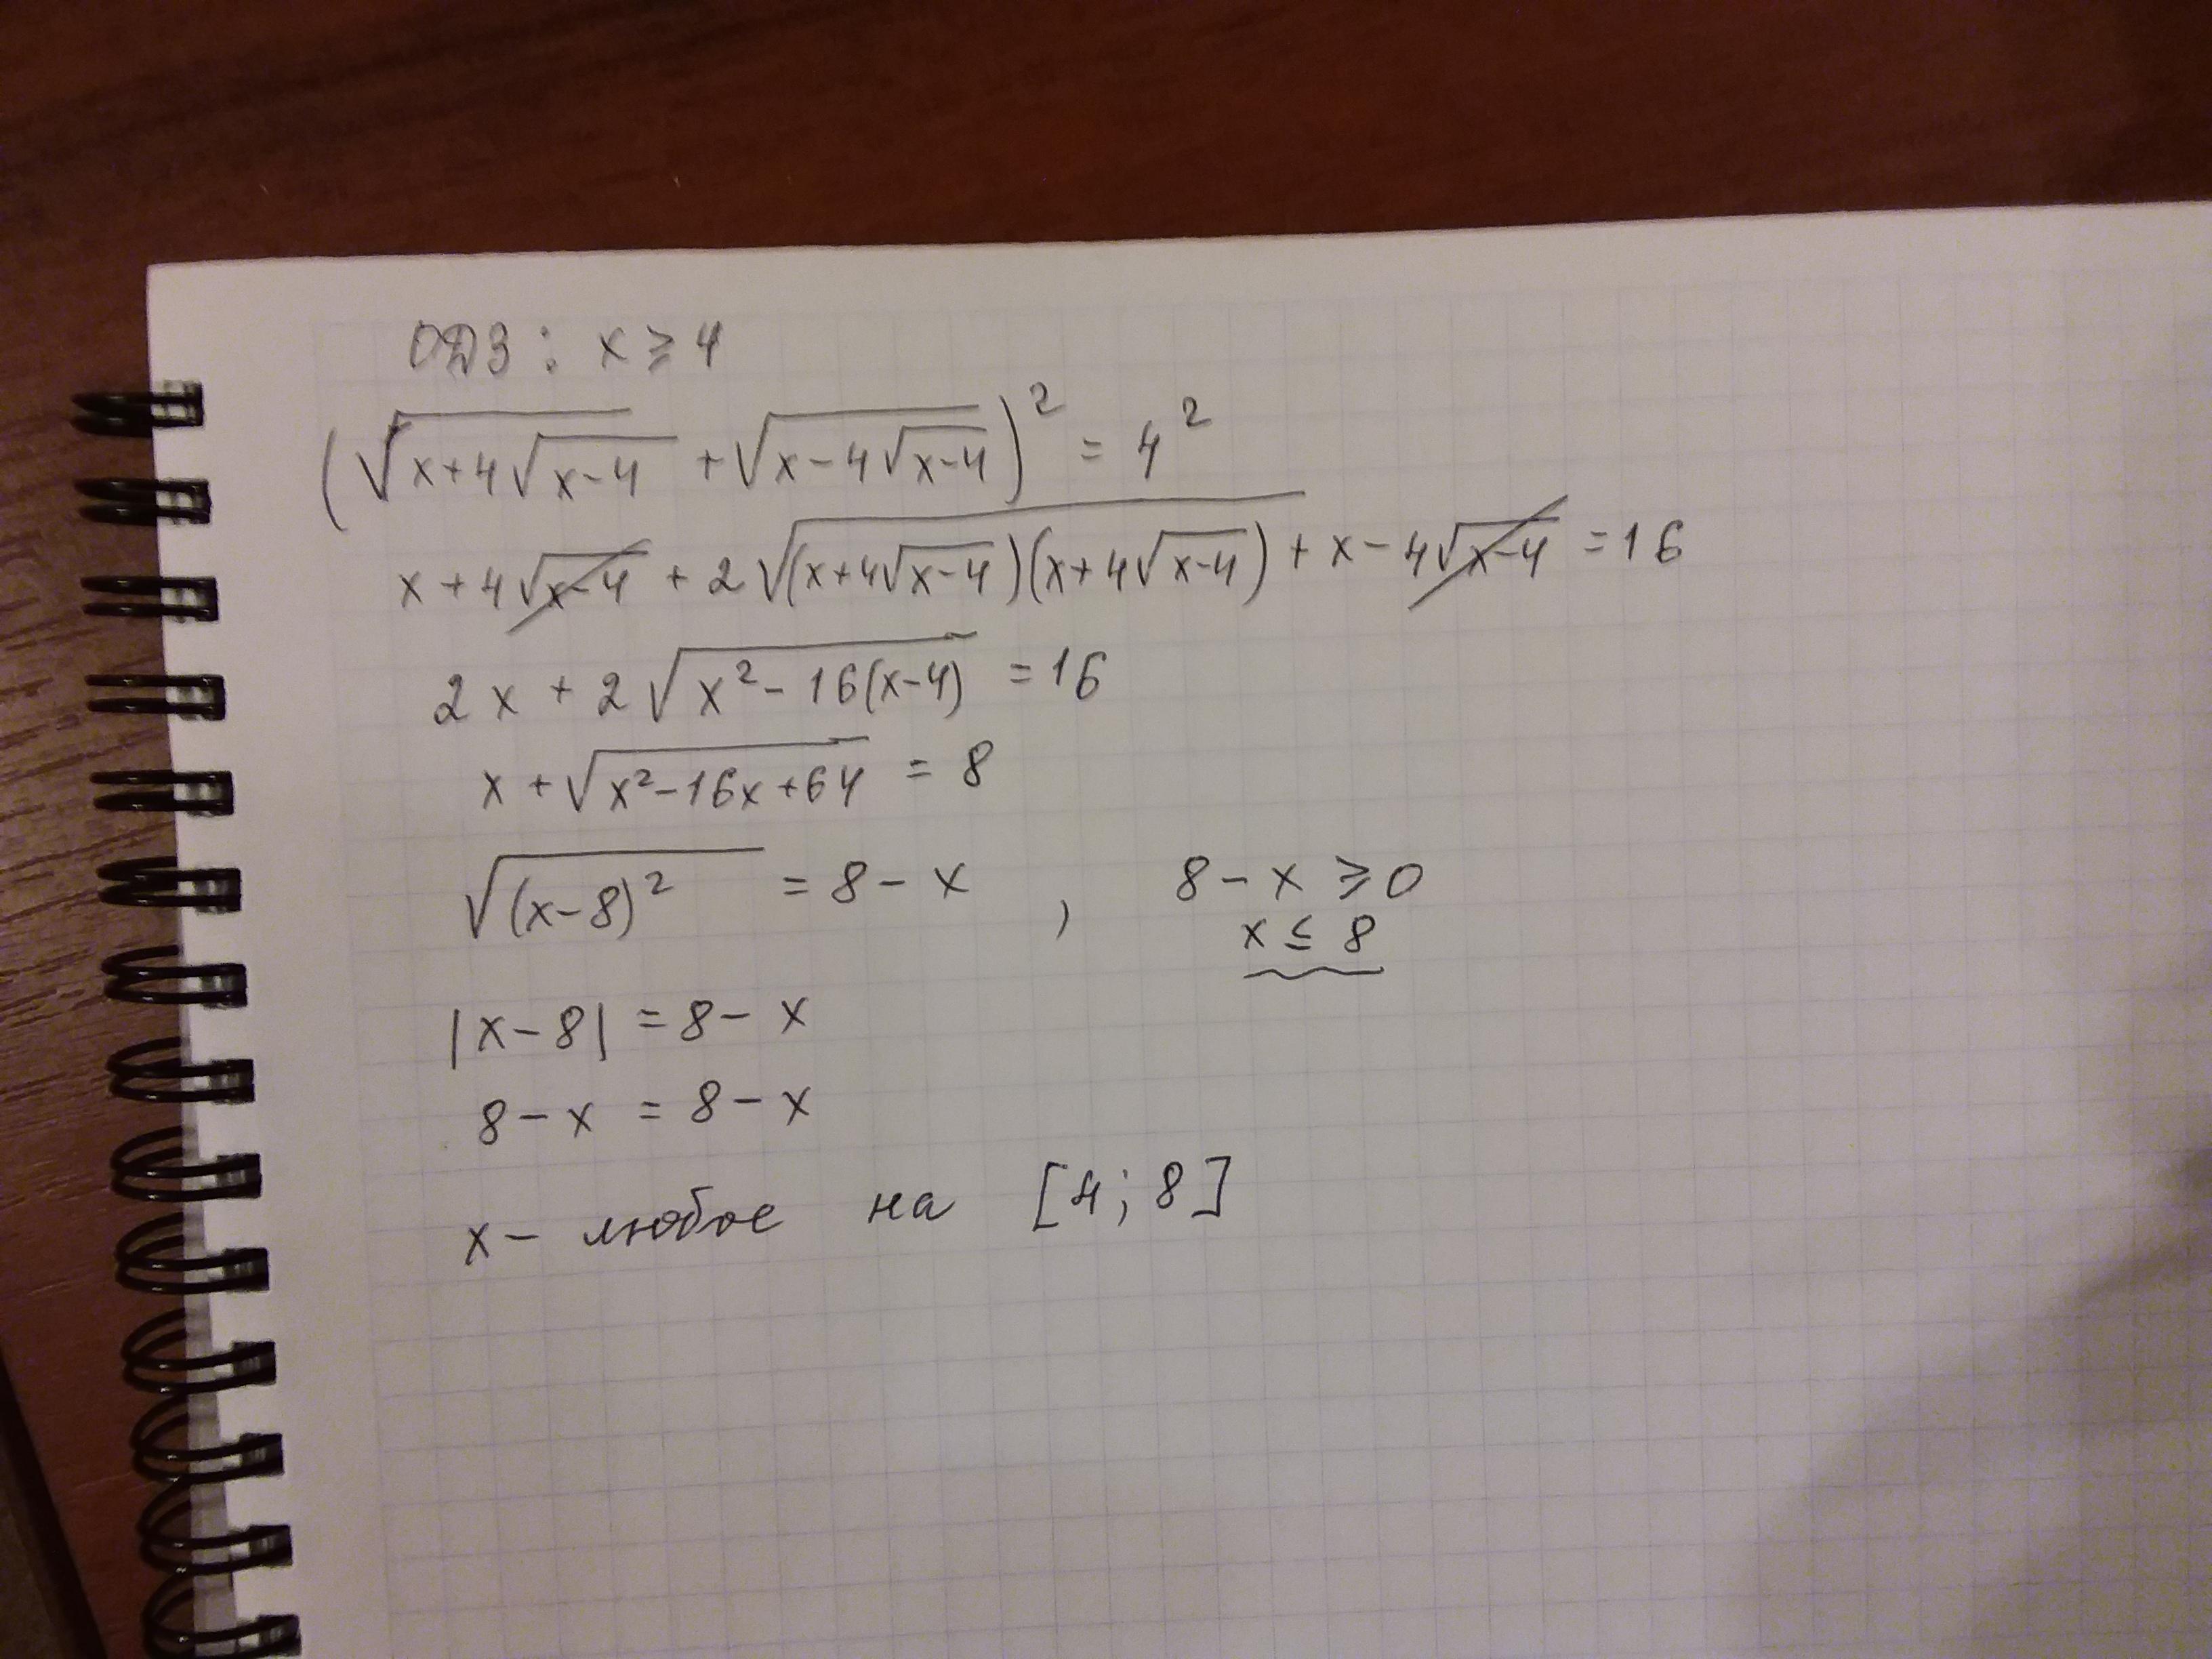 ОДЗ: x ≥ 4
(√(x+4√(x-4)) + √(x-4√(x-4)))² = 4²
x + 4√(x-4) + 2√((x+4√(x-4))(x+4√(x-4))) + x - 4√(x-4) = 16
2x + 2√(x²-16(x-4)) = 16
x + √(x²-16x+64) = 8
√((x-8)²) = 8 - x , 8 - x ≥ 0
x ≤ 8
|x-8| = 8 - x
8 - x = 8 - x
x - любое на [4; 8]